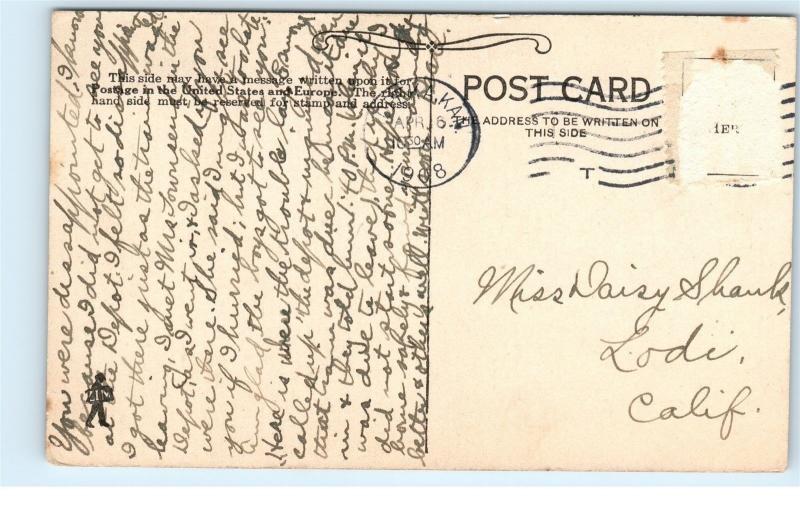 This side may have a message written upon it for
Postage in the United States and Europe. The right
hand side must be reserved for stamp and address.
POST CARD
THE ADDRESS TO BE WRITTEN ON
THIS SIDE
KAN
APR 6
10 30 AM
1908
T
Miss Daisy Shank,
Lodi,
Calif.
You were disappointed I know
because I did not get to see you
at the Depot. I felt so disap
I got there just as the train was
leaving, I met Mrs Townsend in the
Depot, as I went in, & I asked if you
were there. She said I might see
you if I hurried, but I was too late
Am glad the boys got to see you.
Here is where the trouble
called up the depot &
that train was due
in & they told him
was due to leave that
did not start sooner. Hope you got
home safely &
better & other